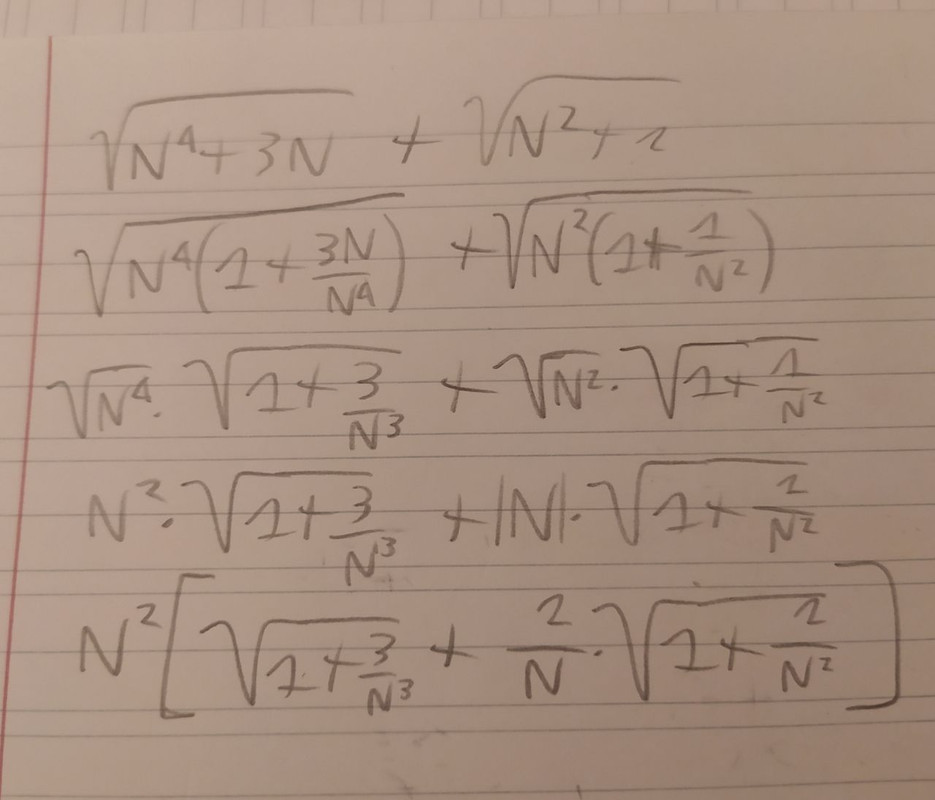 √(N⁴ + 3N) + √(N² + 1)
√(N⁴(1 + 3N/N⁴)) + √(N²(1 + 1/N²))
√N⁴ · √(1 + 3/N³) + √N² · √(1 + 1/N²)
N² · √(1 + 3/N³) + |N| · √(1 + 1/N²)
N² [√(1 + 3/N³) + 1/N · √(1 + 1/N²)]